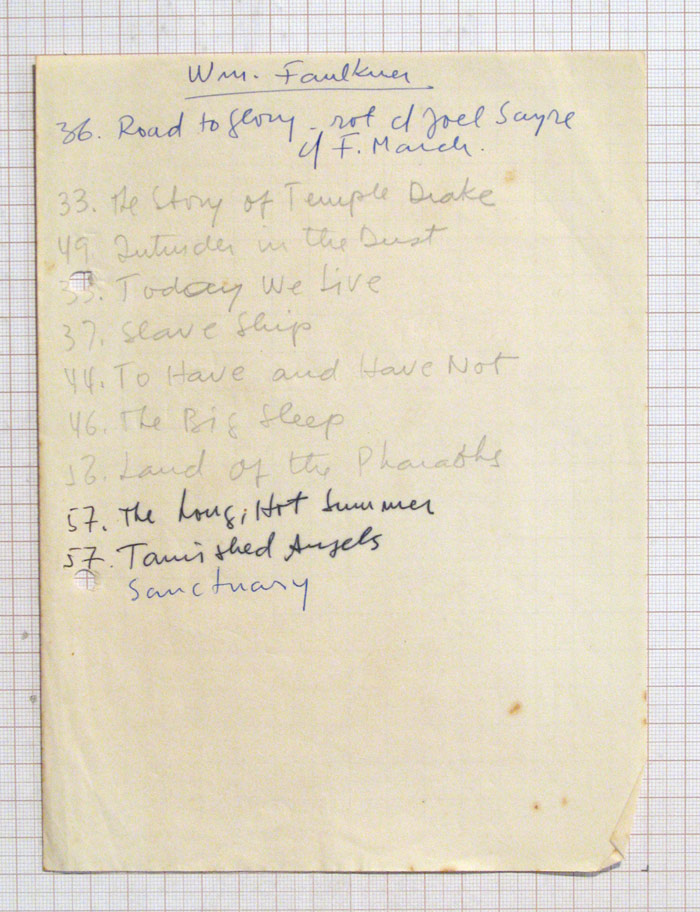 Wm. Faulkner
36. Road to Glory - rot c/ Joel Sayre
c/ F. March.
33. The Story of Temple Drake
49 Intruder in the Dust
33. Today We Live
37. Slave Ship
44. To Have and Have Not
46. The Big Sleep
Land of the Pharaohs
57. The Long, Hot Summer
57. Tarnished Angels
Sanctuary